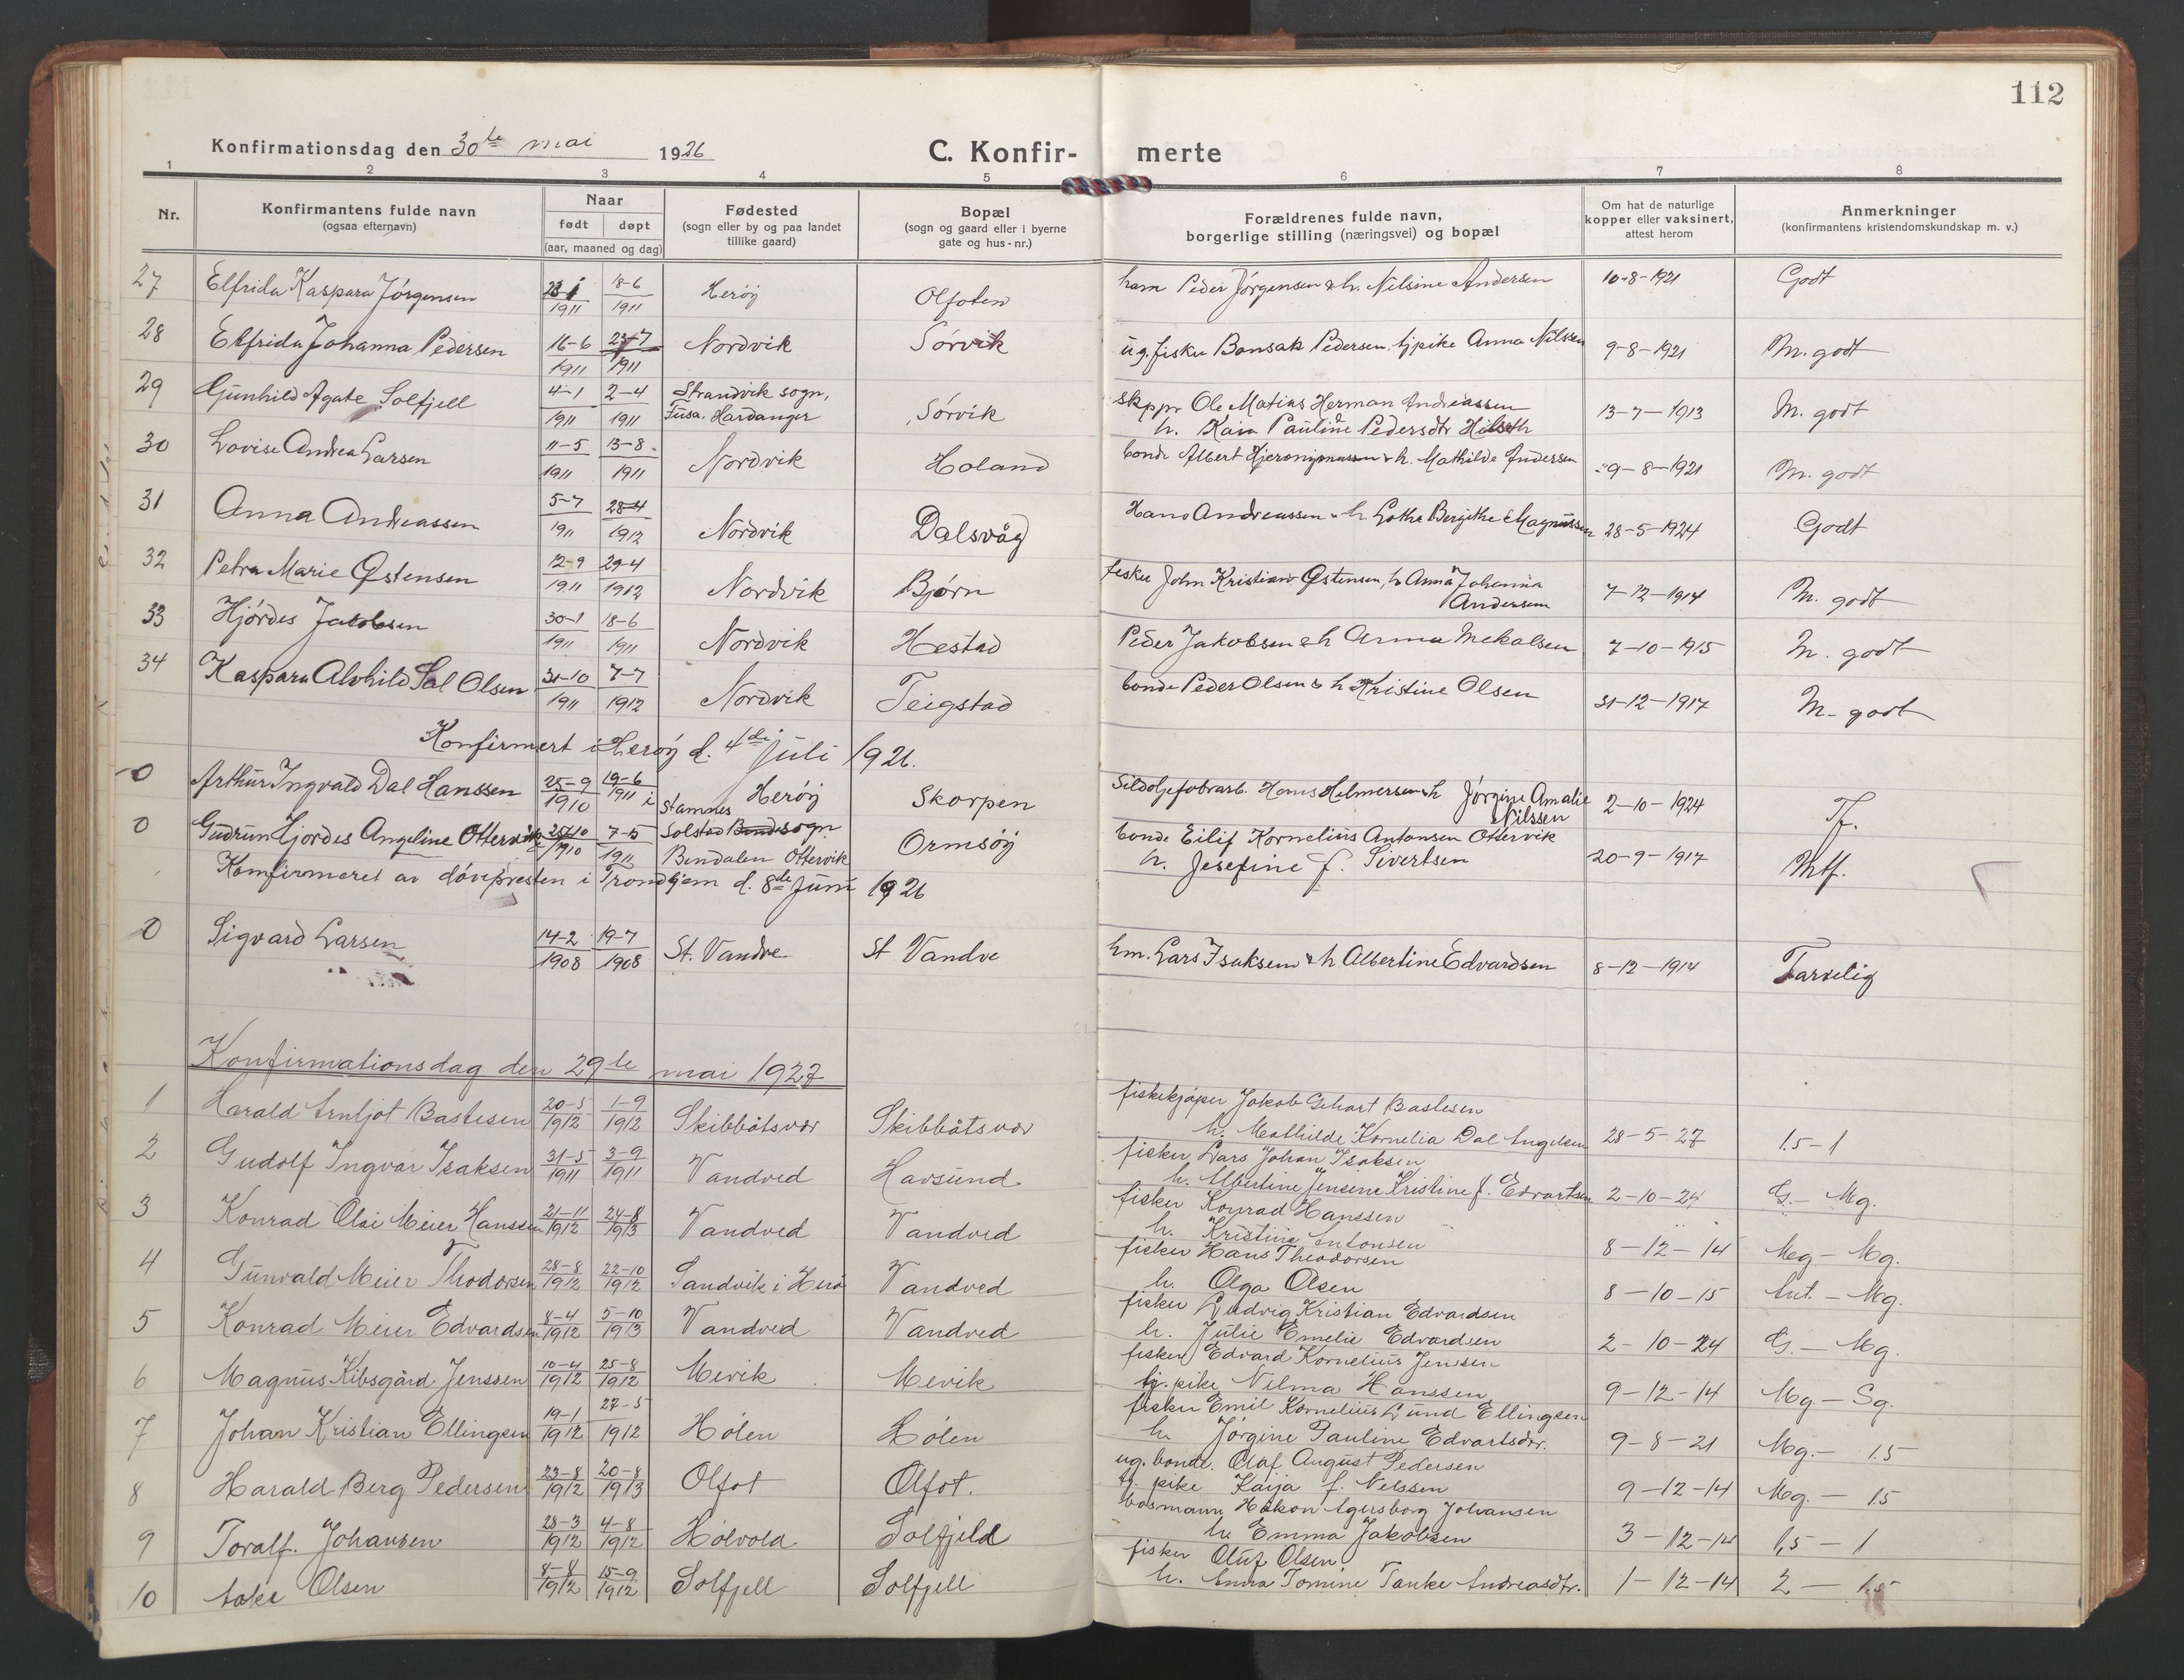 112
Konfirmationsdag den 30te mai 1926 C. Konfir- merte
1 2 3 4 5 6 7 8
Nr. Konfirmantens fulde navn (ogsaa efternavn) Naar født døpt (aar, maaned og dag) Fødested (sogn eller by og paa landet tillike gaard) Bopæl (sogn og gaard eller i byerne gate og hus-nr.) Forældrenes fulde navn, borgerlige stilling (næringsvei) og bopæl Om hat de naturlige kopper eller vaksinert, attest herom Anmerkninger (konfirmantens kristendomskundskap m. v.)
27 Elfrida Kaspara Jörgensen 1911 18-6 1911 Heröy Olfoten Peder Jörgensen & h. Nilsine Andersen 10-8-1921 Godt
28 Elfrida Johanna Pedersen 16-6 1911 1911 Nordvik Sörvik ug. fisker Bonsak Pedersen, tj pike Anna Nilssen 9-8-1921 M. godt
29 Gunhild Agate Solfjell 4-1 1911 2-4 1911 Strandvik sogn, Fusa, Hardanger Sörvik Ole Matias Herman Andreassen
h. Kaia Pauline Pedersdtr 13-7-1913 M. godt
30 Lovise Andrea Larsen 11-5 1911 13-8 1911 Nordvik Holand bonde Albert h. Mathilde Andersen 9-8-1921 M. godt
31 Anna Andreassen 5-7 1911 28-4 1912 Nordvik Dalsvåg Hans Andreassen h. Bergithe Magnussen 28-5-1924 Godt
32 Petra Marie Østensen 12-9 1911 29-4 1912 Nordvik Bjørn fisker John Kristian Østensen, h Anna Johanna Andersen 7-12-1914 M. godt
33 Hjördes Jakobsen 30-1 1911 18-6 1911 Nordvik Hestad Peder Jakobsen & h Anna Mekalsen 7-10-1915 M. godt
34 Kaspara Alvhild Sal Olsen 31-10 1911 7-7 1912 Nordvik Teigstad bonde Peder Olsen & h Kristine Olsen 31-12-1917 M- godt
Konfirmert i Heröy d. 4de juli 1926.
0 Arthur Ingvald Dal Hanssen 25-9 1910 19-6 1911 i Stamnes Heröy Skorpen Hans Helmersen & h Jörgine Amalie Nilssen 2-10-1924 Tf.
0 Gudrun Hjordes Angeline Ottervik 1910 7-5 1911 Solstad sogn Bindalen Ottervik Ormsöy bonde Eilif Kornelius Antonsen Ottervik
h. Josefine f. Sivertsen 20-9-1917 Mtf.
Konfirmeret av dövepresten i Trondhjem d. 8de Juni 1926
0 Sigvard Larsen 14-2 1908 19-7 1908 St. Vandve St Vandve hm. Lars Isaksen & h Albertine Edvardsen 8-12-1914 Tarvelig
Konfirmationsdag den 29te mai 1927
1 Harald Arnljot Bastesen 20-5 1912 1-9 1912 Skibbåtsvær Skibbåtsvær fiskekjøper Jakob Gehart Bastesen
h. Mathilde Kornelia Dal Angelsen 28-5-27 1.5-1
2 Gudolf Ingvar Isaksen 31-5 1911 3-9 1911 Vandved Havsund fisker Lars Johan Isaksen
h. Albertine Jensine Kristine f. Edvartsen 2-10-24 G.- Mg.
3 Konrad Olai Meier Hanssen 21-11 1912 24-8 1913 Vandved Vandved fisker Konrad Hanssen
h. Kristine Antonsen 8-12-14 Mg- Mg.
4 Gunvald Meier Thodorsen 28-8 1912 22-10 1912 Sandvik i Herö Vandved fisker Hans Theodorsen
h. Olga Olsen 8-10-15 Mt. - Mg.
5 Konrad Meier Edvardsen 8-4 1912 5-10 1913 Vandved Vandved fisker Ludvig Kristian Edvardsen
h. Julie Emelie Edvardsen 2-10-24 G. - Mg.
6 Magnus Kibsgård Jenssen 10-4 1912 25-8 1912 Mevik Mevik fisker Edvard Kornelius Jenssen
tj. pike Nilma Hanssen 9-12-14 Mg.- Sg.
7 Johan Kristian Ellingsen 19-1 1912 27-5 1912 Hölen Hölen fisker Emil Kornelius Lund Ellingsen
h. Jörgine Pauline Edvartsdtr. 9-8-21 Mg.- 1.5
8 Harald Berg Pedersen 23-8 1912 20-8 1913 Olfot Olfot. ug. bonde. Olaf August Pedersen
tj. pike Kaija f. Nelssen 9-12-14 Mg. - 1.5
9 Toralf Johansen 28-3 1912 4-8 1912 Hölvold Solfjeld bosmann Håkon Agersborg Johansen
h. Emma Jakobsen 3-12-14 1,5 - 1
10 Olsen 1912 15-9 1912 Solfjell Solfjell fisker Oluf Olsen
h. Anna Tomine Tanke Andreasdtr. 1-12-14 2 - 1.5